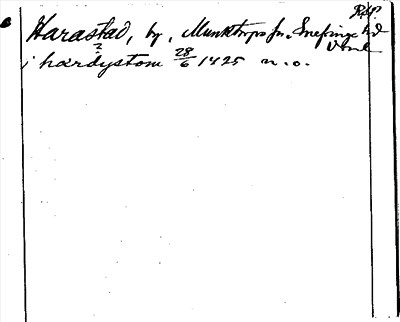 RAP.
Harastad, by, Munktorps sn, Snefringe hd
Vml
i hardystom 28/6 1425 n. o.